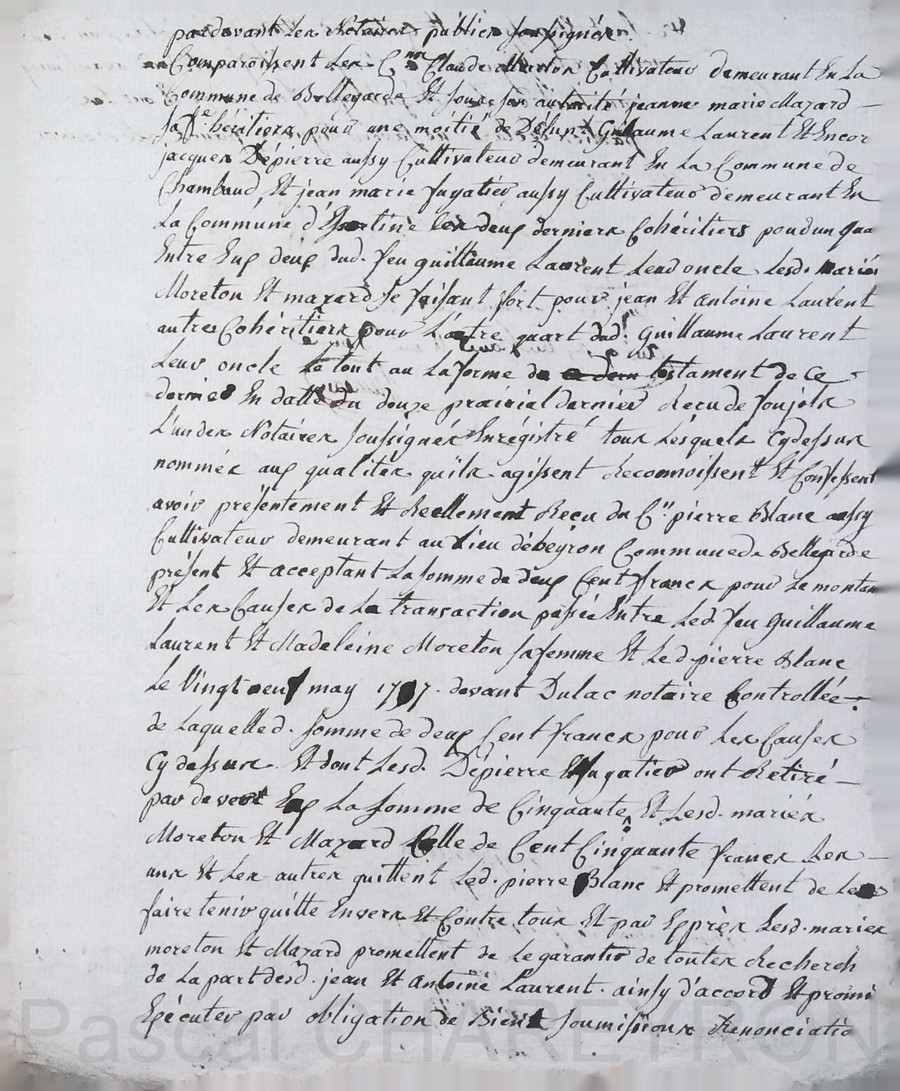 pardevant Les Notaires publics soussignés
Comparoissent Les C.ens Claude Moreton Cultivateur demeurant En La
Commune de Bellegarde Et sous son autorité jeanne marie Mazard –
sa f.e héritiers pour une moitié de Défunt Guilaume Laurent Et Encor
jacques Dépierre aussy Cultivateur demeurant En La Commune de
Chambaud, Et jean marie fugatier aussy Cultivateur demeurant En
La Commune d' Les deux derniers Cohéritiers pour un qua
Entre Eux deux dud. feu guillaume Laurent Leur oncle Lesd. mariés
Moreton Et mazard se faisant fort pour jean Et antoine Laurent
autres Cohéritiers pour L'autre quart dud. Guillaume Laurent
Leur oncle Le tout au La forme du testament de Ce
dernier En datte du douze prairial dernier Recu de
L'un des Notaires soussignés Enrégistré tous Lesquels Cydessus
nommés aux qualités qu'ils agissent Reconnoissent Et Confessent
avoir présentement Et Reellement Reçu du C.en pierre Blanc aussy
Cultivateur demeurant au Lieu débeyron Commune de Bellegarde
présent Et acceptant La somme de deux Cent francs pour Le montan
Et Les Causes de La transaction passée Entre Led. feu guillaume
Laurent Et Madeleine Moreton sa femme Et Led. pierre Blanc
Le Vingt neuf may 1787. devant Dulac notaire Controllée.
de Laquelle d. somme de deux Cent francs pour Les Causes
Cy dessus. Et dont Lesd. Dépierre Et fugatier ont Retiré –
par devers Eux La somme de Cinquante, Et Lesd. mariés
Moreton Et Mazard Celle de Cent Cinquante francs Les –
uns Et Les autres quittent Led. pierre Blanc Et promettent de Le
faire tenir quitte Envers Et Contre tous Et par Exprès Lesd. mariés
moreton Et Mazard promettent de Le garantir de toutes Recherch
de La part desd. jean Et antoine Laurent. ainsy d'accord Et promi
Exécuter par obligation de Biens soumissions Renonciatio
Pascal CHAREYRON